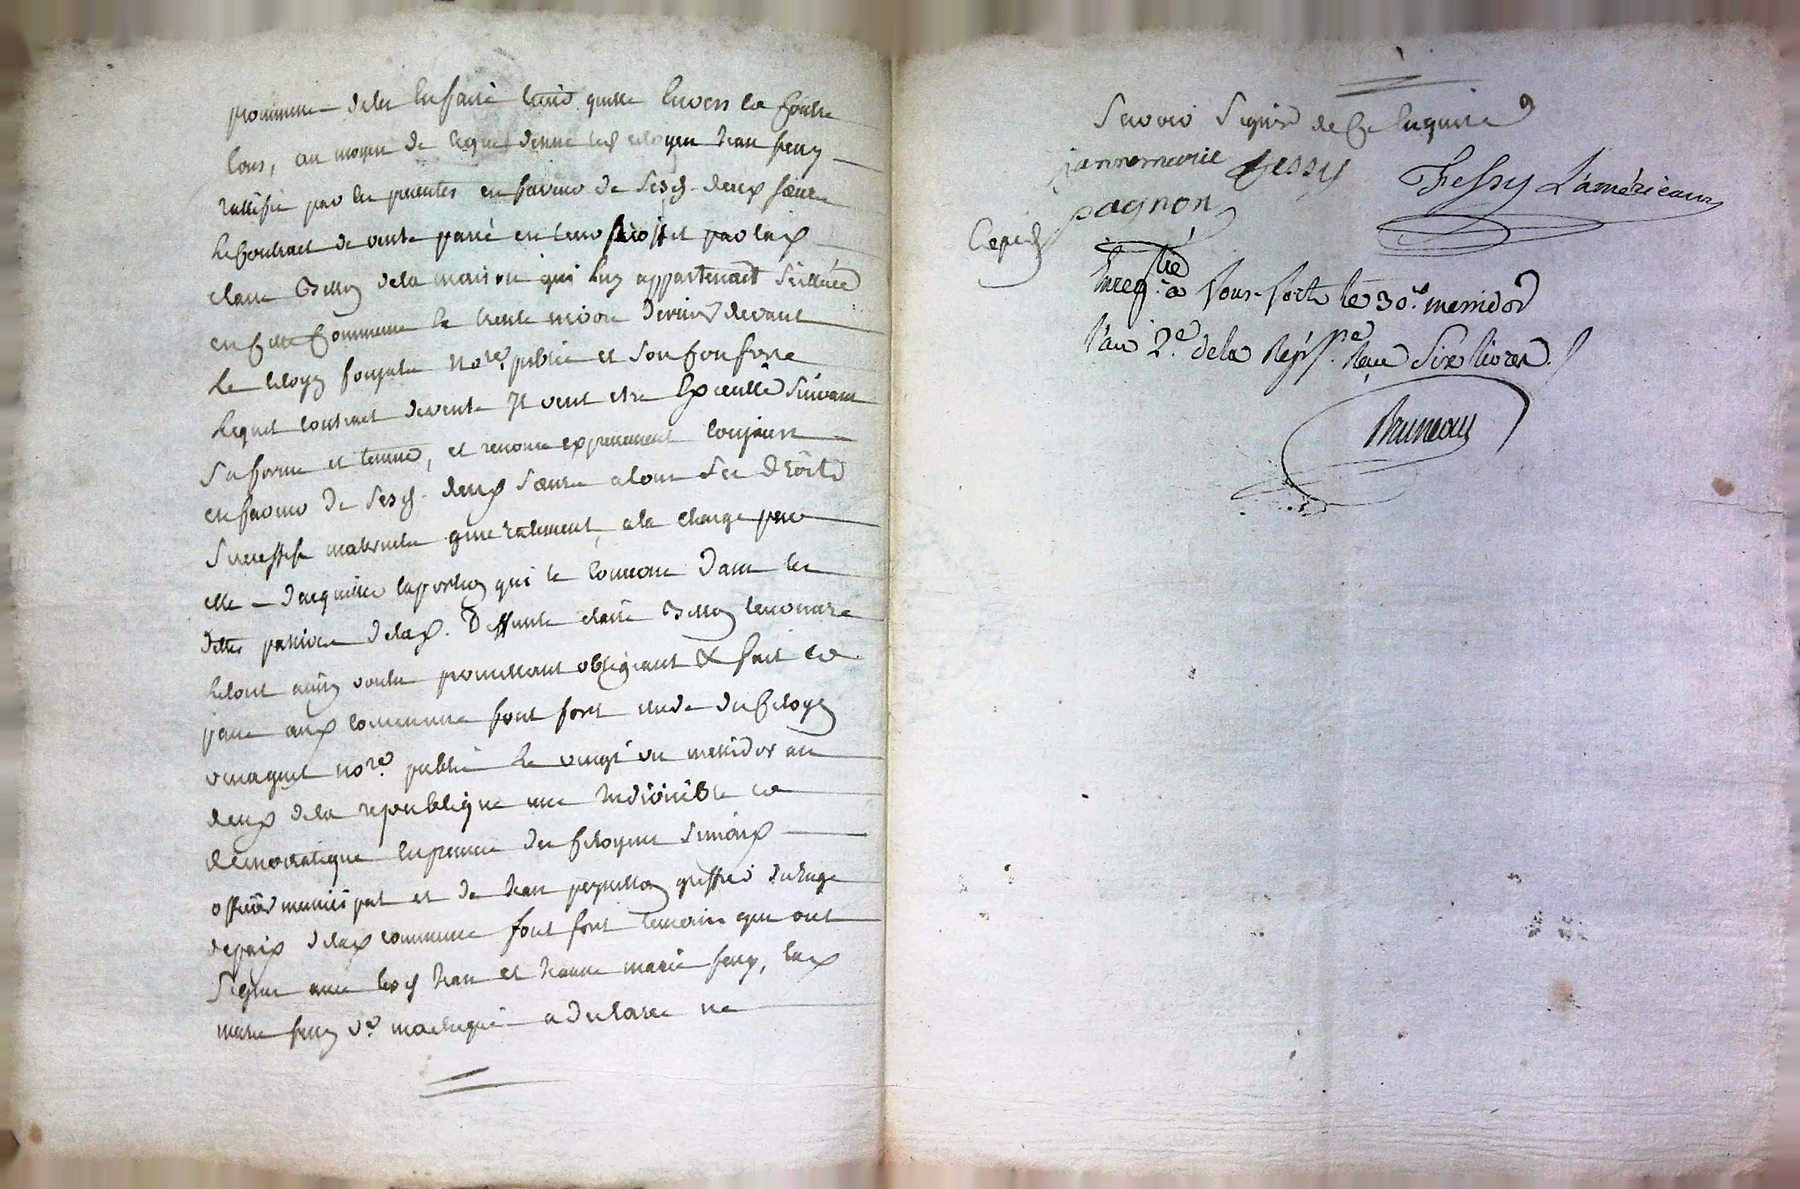 promme de les en faire tenir quitte envers et contre
tous, au moyen de lequel donne led citoyen Jean fessy
ratiffie par les presentes en faveur de sesd. deux sœurs
le Contract de vente passé en leur proffit par lad
claire Billon de la maison qui luy appartenait scittuée
en cette Commune le trente nivose dernier devant
le citoyen no.re public et son Confrere
lequel contract de vente Il veut etre Executté suivant
sa forme et teneur, et renonce expressement toujours
en faveur de sesd. deux sœurs a tous ses droits
successifs maternels generalement, a la charge pour
elle d'acquitter la portion qui le concerne dans les
dettes passives de lad. Deffunte claire Billon leur mere
le tout ainsy voulu promettant obligeant & fait et
passé aud commune font fort etude du Citoyen
no.re public le vingt un messidor an
deux de la republique une Indivisible et
démocratique en presence des Citoyens
officier municipal et de Jean greffier du Juge
de paix de lad commune font fort temoins qui ont
signé avec lesd Jean et Jeanne marie fessy, lad
marie fessy v.e a declaré ne
Scavoir Signer de Ce Enquise
jannemarie fessy Fessy L'américain
pagnon
Enreg.tré à Fons-forts le 30.e messidor
l'an 2.e de la Rép. Reçu Six livres.
Bruneau